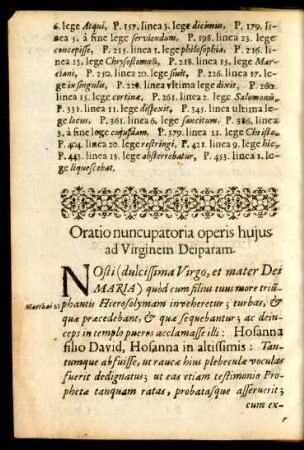 6. lege Atqui, P. 157. linea 3. lege dicimus, P. 179. li-
nea 5. à fine lege serviendum, P. 198. linea 23. lege
concepisse, P. 215. linea 1. lege philosophia, P. 216. li-
nea 13. lege Chrysostomũ, P. 218. linea 15. lege Mar-
ciani, P. 250. linea 20. lege fuit, P. 226. linea 17. le-
ge in singulis, P. 228. linea vltima lege dixit, P. 260.
linea 15. lege cortinæ, P. 261. linea 2. lege Salomonis,
P. 331. linea 11. lege dispexit, P. 345. linea ultima le-
ge locus, P. 361. linea 6. lege sancitum, P. 386. linea
3. à fine lege cujusdam, P. 379. linea 12. lege Christo,
P. 404. linea 20. lege restringi, P. 421. linea 9. lege hic,
P. 443. linea 18. lege absterrebatur, P. 453. linea 1. le-
ge liquescebat.
Oratio nuncupatoria operis hujus
ad Virginem Deiparam.
NOsti (dulcissima Virgo, et mater Dei
MARIA) quòd cum filius tuus more triũ-
Matthæi 21 phantis Hierosolymam inveheretur; turbas, &
quæ præcedebant, & quæ sequebantur; ac dein-
ceps in templo pueros acclamasse illi: Hosanna
filio David, Hosanna in altissimis: Tan-
tumque abfuisse, ut raucæ hius plebeculæ voculas
fuerit dedignatus; ut eas etiam testimonio Pro-
phetæ tanquam ratas, probatasque asseruerit;
cum ex-